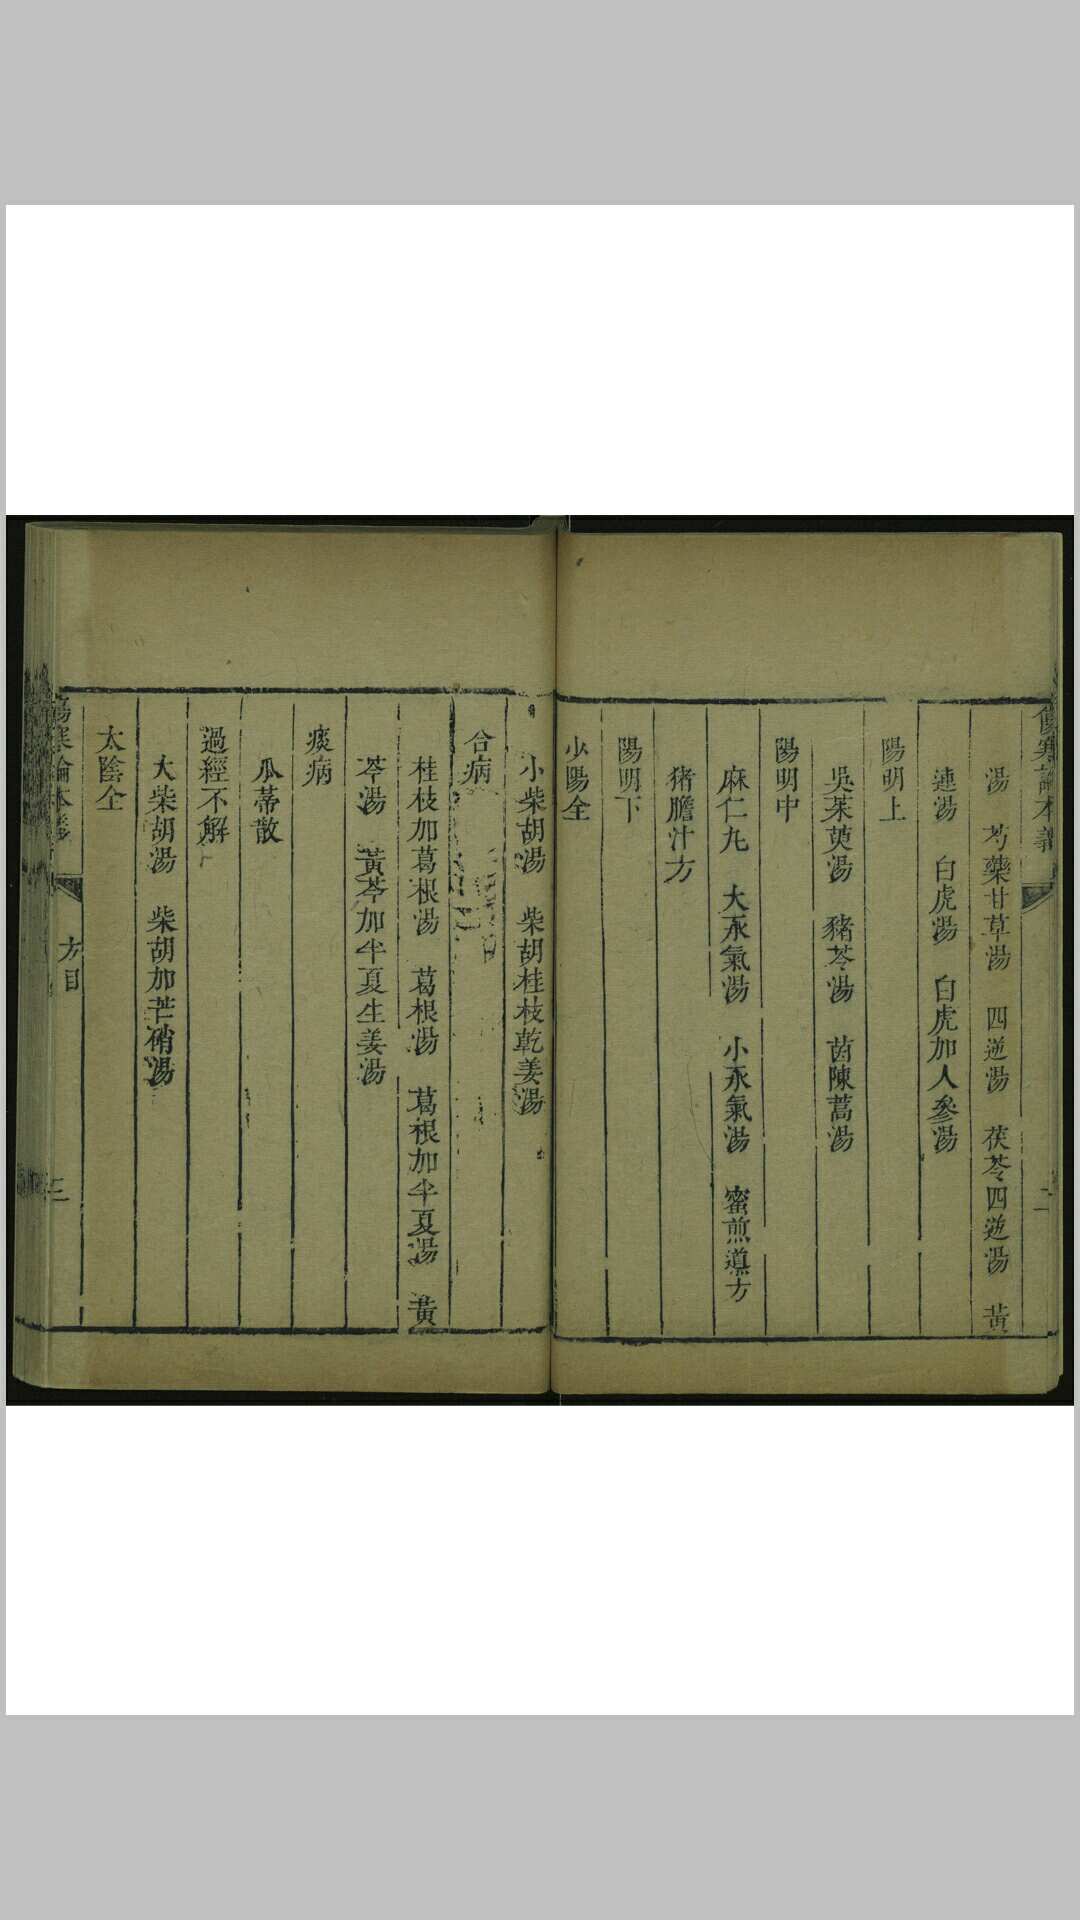 傷寒論本義
二
湯　芍藥甘草湯　四逆湯　茯苓四逆湯　黃
連湯　白虎湯　白虎加人參湯
陽明上
吳茱萸湯　豬苓湯　茵陳蒿湯
陽明中
麻仁丸　大承氣湯　小承氣湯　蜜煎導方
陽明下
猪膽汁方
少陽全
小柴胡湯　柴胡桂枝乾姜湯
合病
桂枝加葛根湯　葛根湯　葛根加半夏湯　黃
芩湯　黃芩加半夏生姜湯
痰病
瓜蒂散
過經不解
大柴胡湯　柴胡加芒硝湯
太陰全
傷寒論本義
方目
三